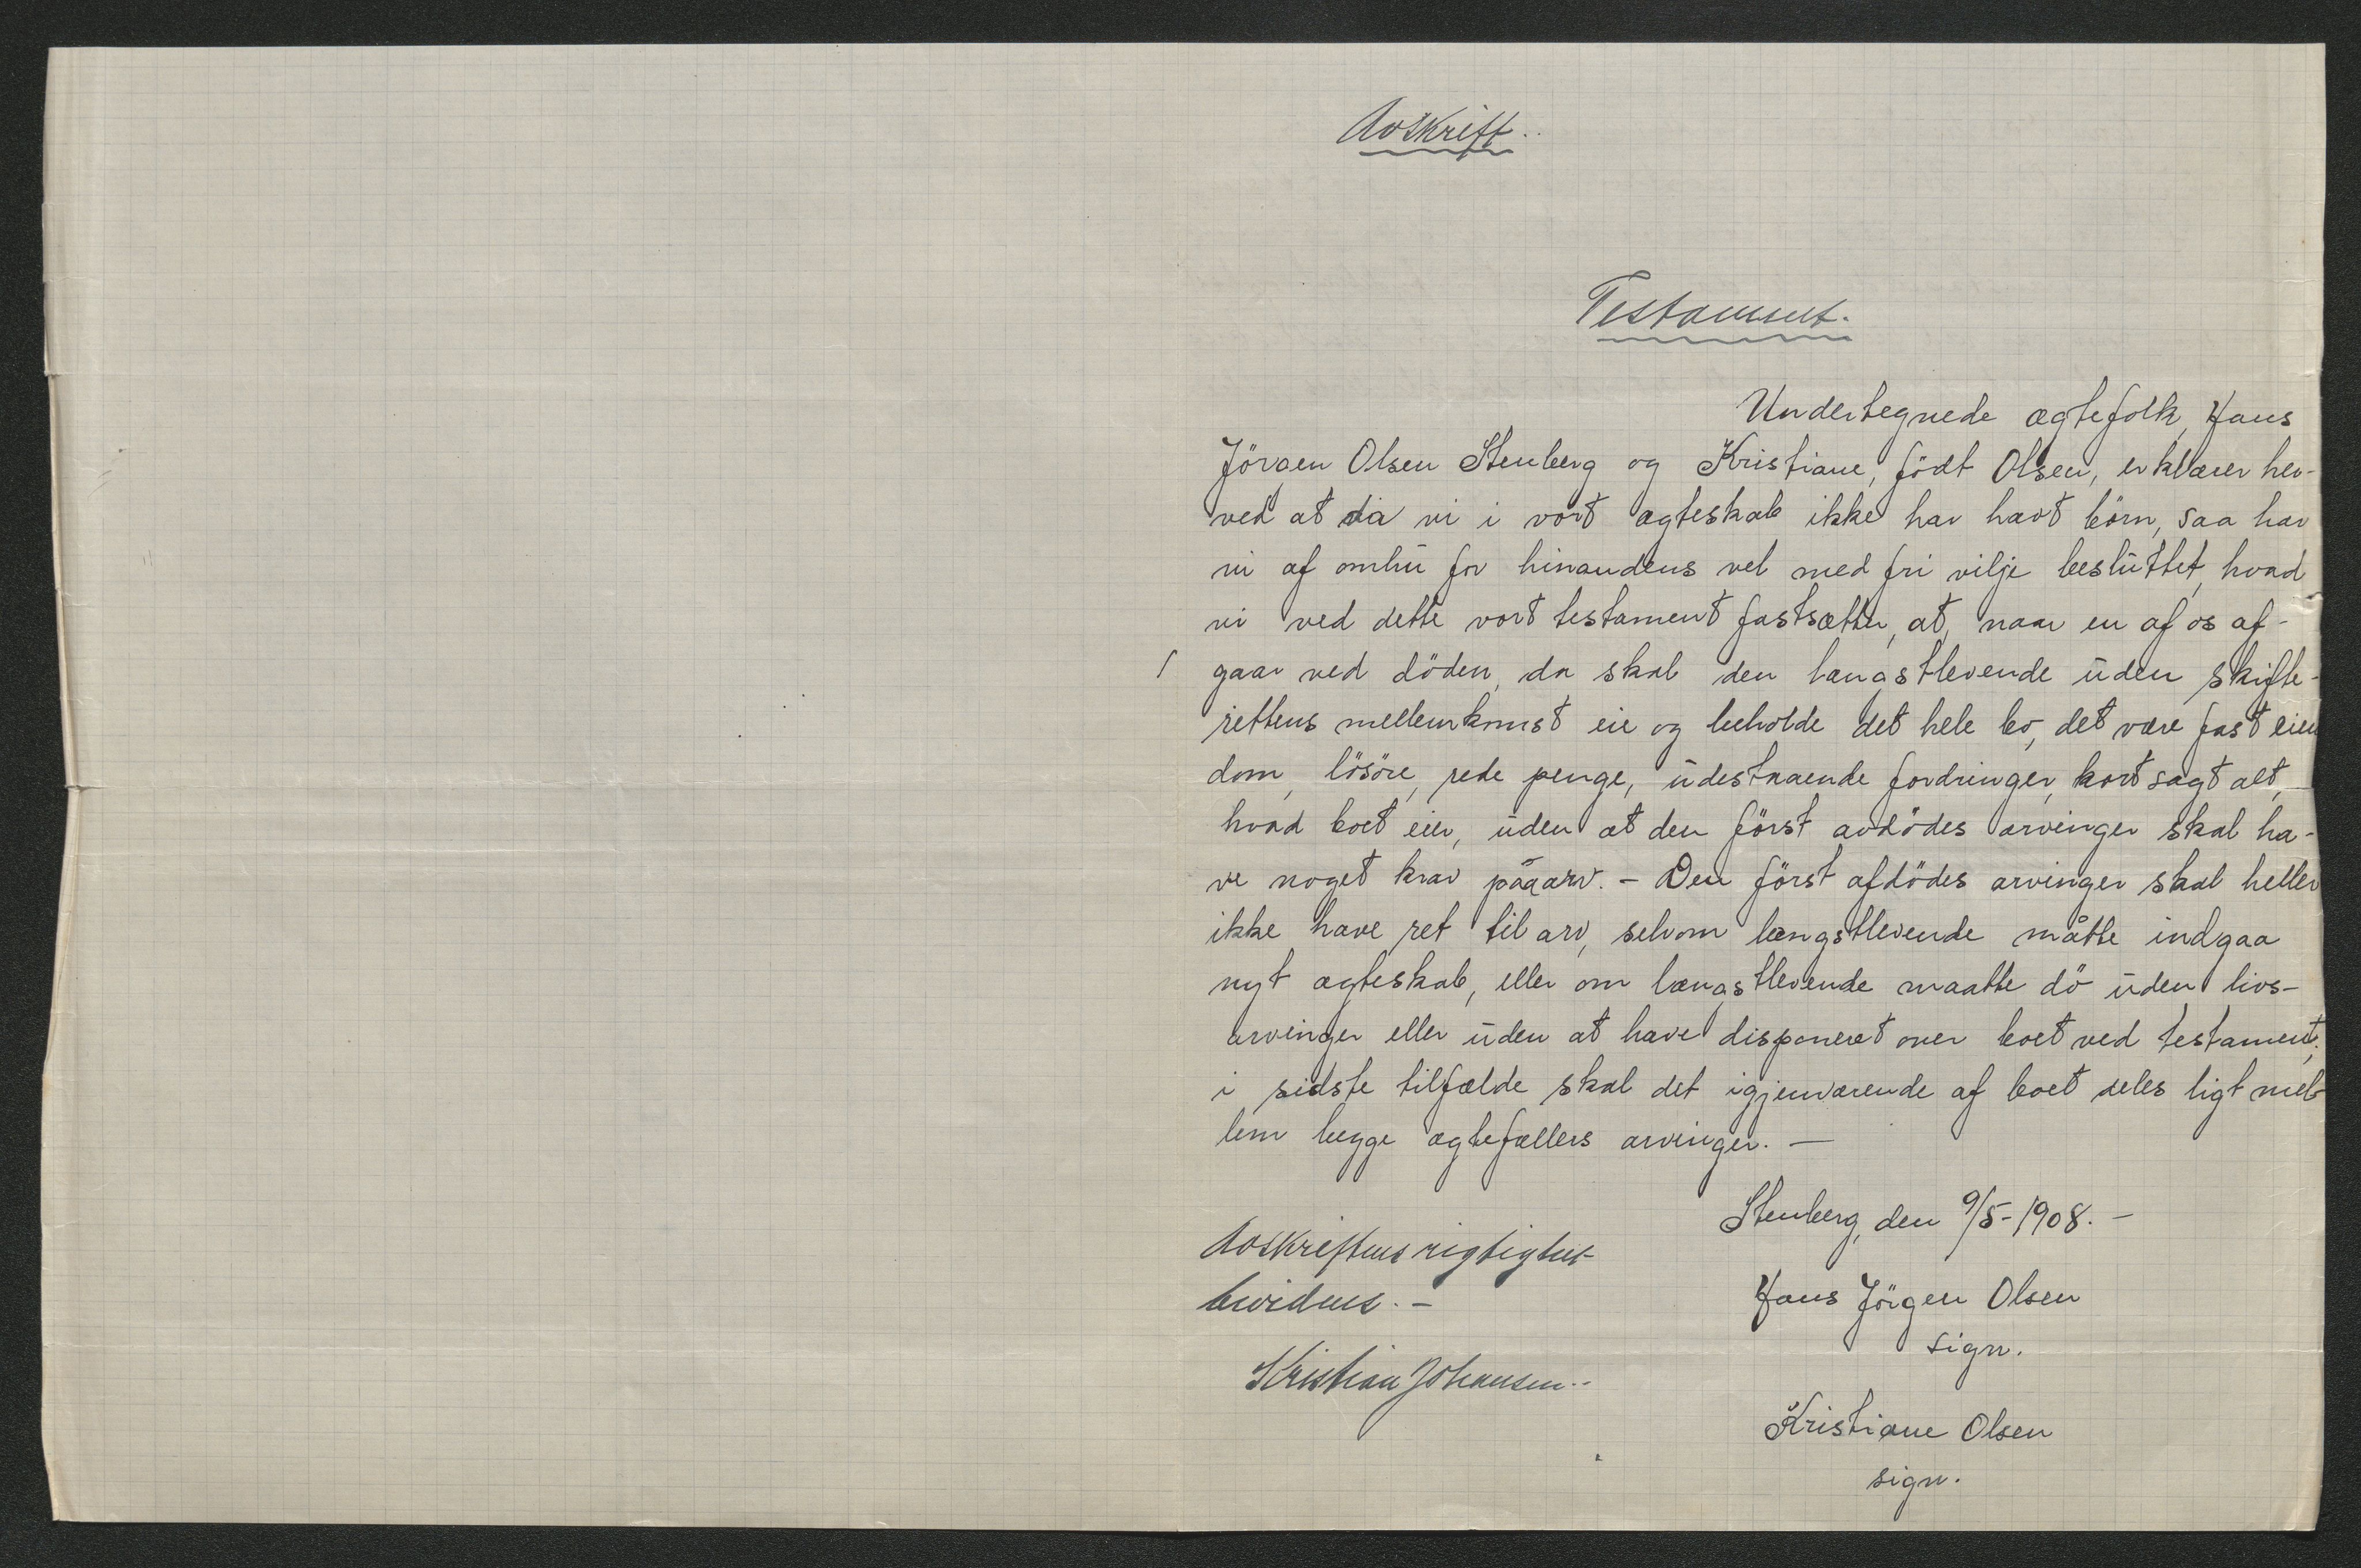 Avskrift.
Testament.
Undertegnede ægtefolk, Hans
Jörgen Olsen Stenberg og Kristiane, födt Olsen, erklærer her-
ved at da vi i vort ægteskab ikke har havt börn, saa har
vi af omhu for hinandens vel med fri vilje besluttet, hvad
vi ved dette vort testament fastsætter, at, naar en af os af-
gaar ved döden, da skal den længstlevende uden skifte-
rettens mellemkomst eie og beholde det hele bo, det være fast eien
dom, lösöre, rede penge, udestaaende fordringer, kort sagt alt,
hvad boet eier, uden at den först avdödes arvinger skal ha-
ve noget krav paa arv. - Den först afdödes arvinger skal heller
ikke have ret til arv, selvom længstlevende måtte indgaa
nyt ægteskab, eller om længstlevende maatte dö uden livs-
arvinger eller uden at have disponeret over boet ved testament;
i sidste tilfælde skal det igjenværende af boet deles ligt mel-
lem begge ægtefællers arvinger. —
Stenberg, den 9/5-1908. -
Avskriftens rigtighet
bevidnes. -
Hans Jörgen Olsen
sign.
Kristian Johansen.
Kristiane Olsen
sign.